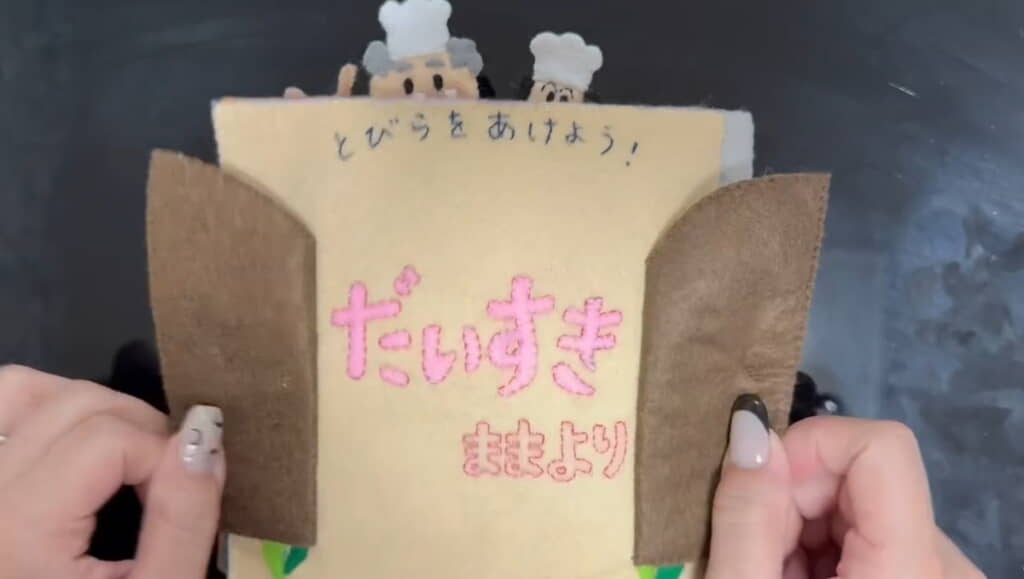 とびらをあけよう!
だいすき
ままより